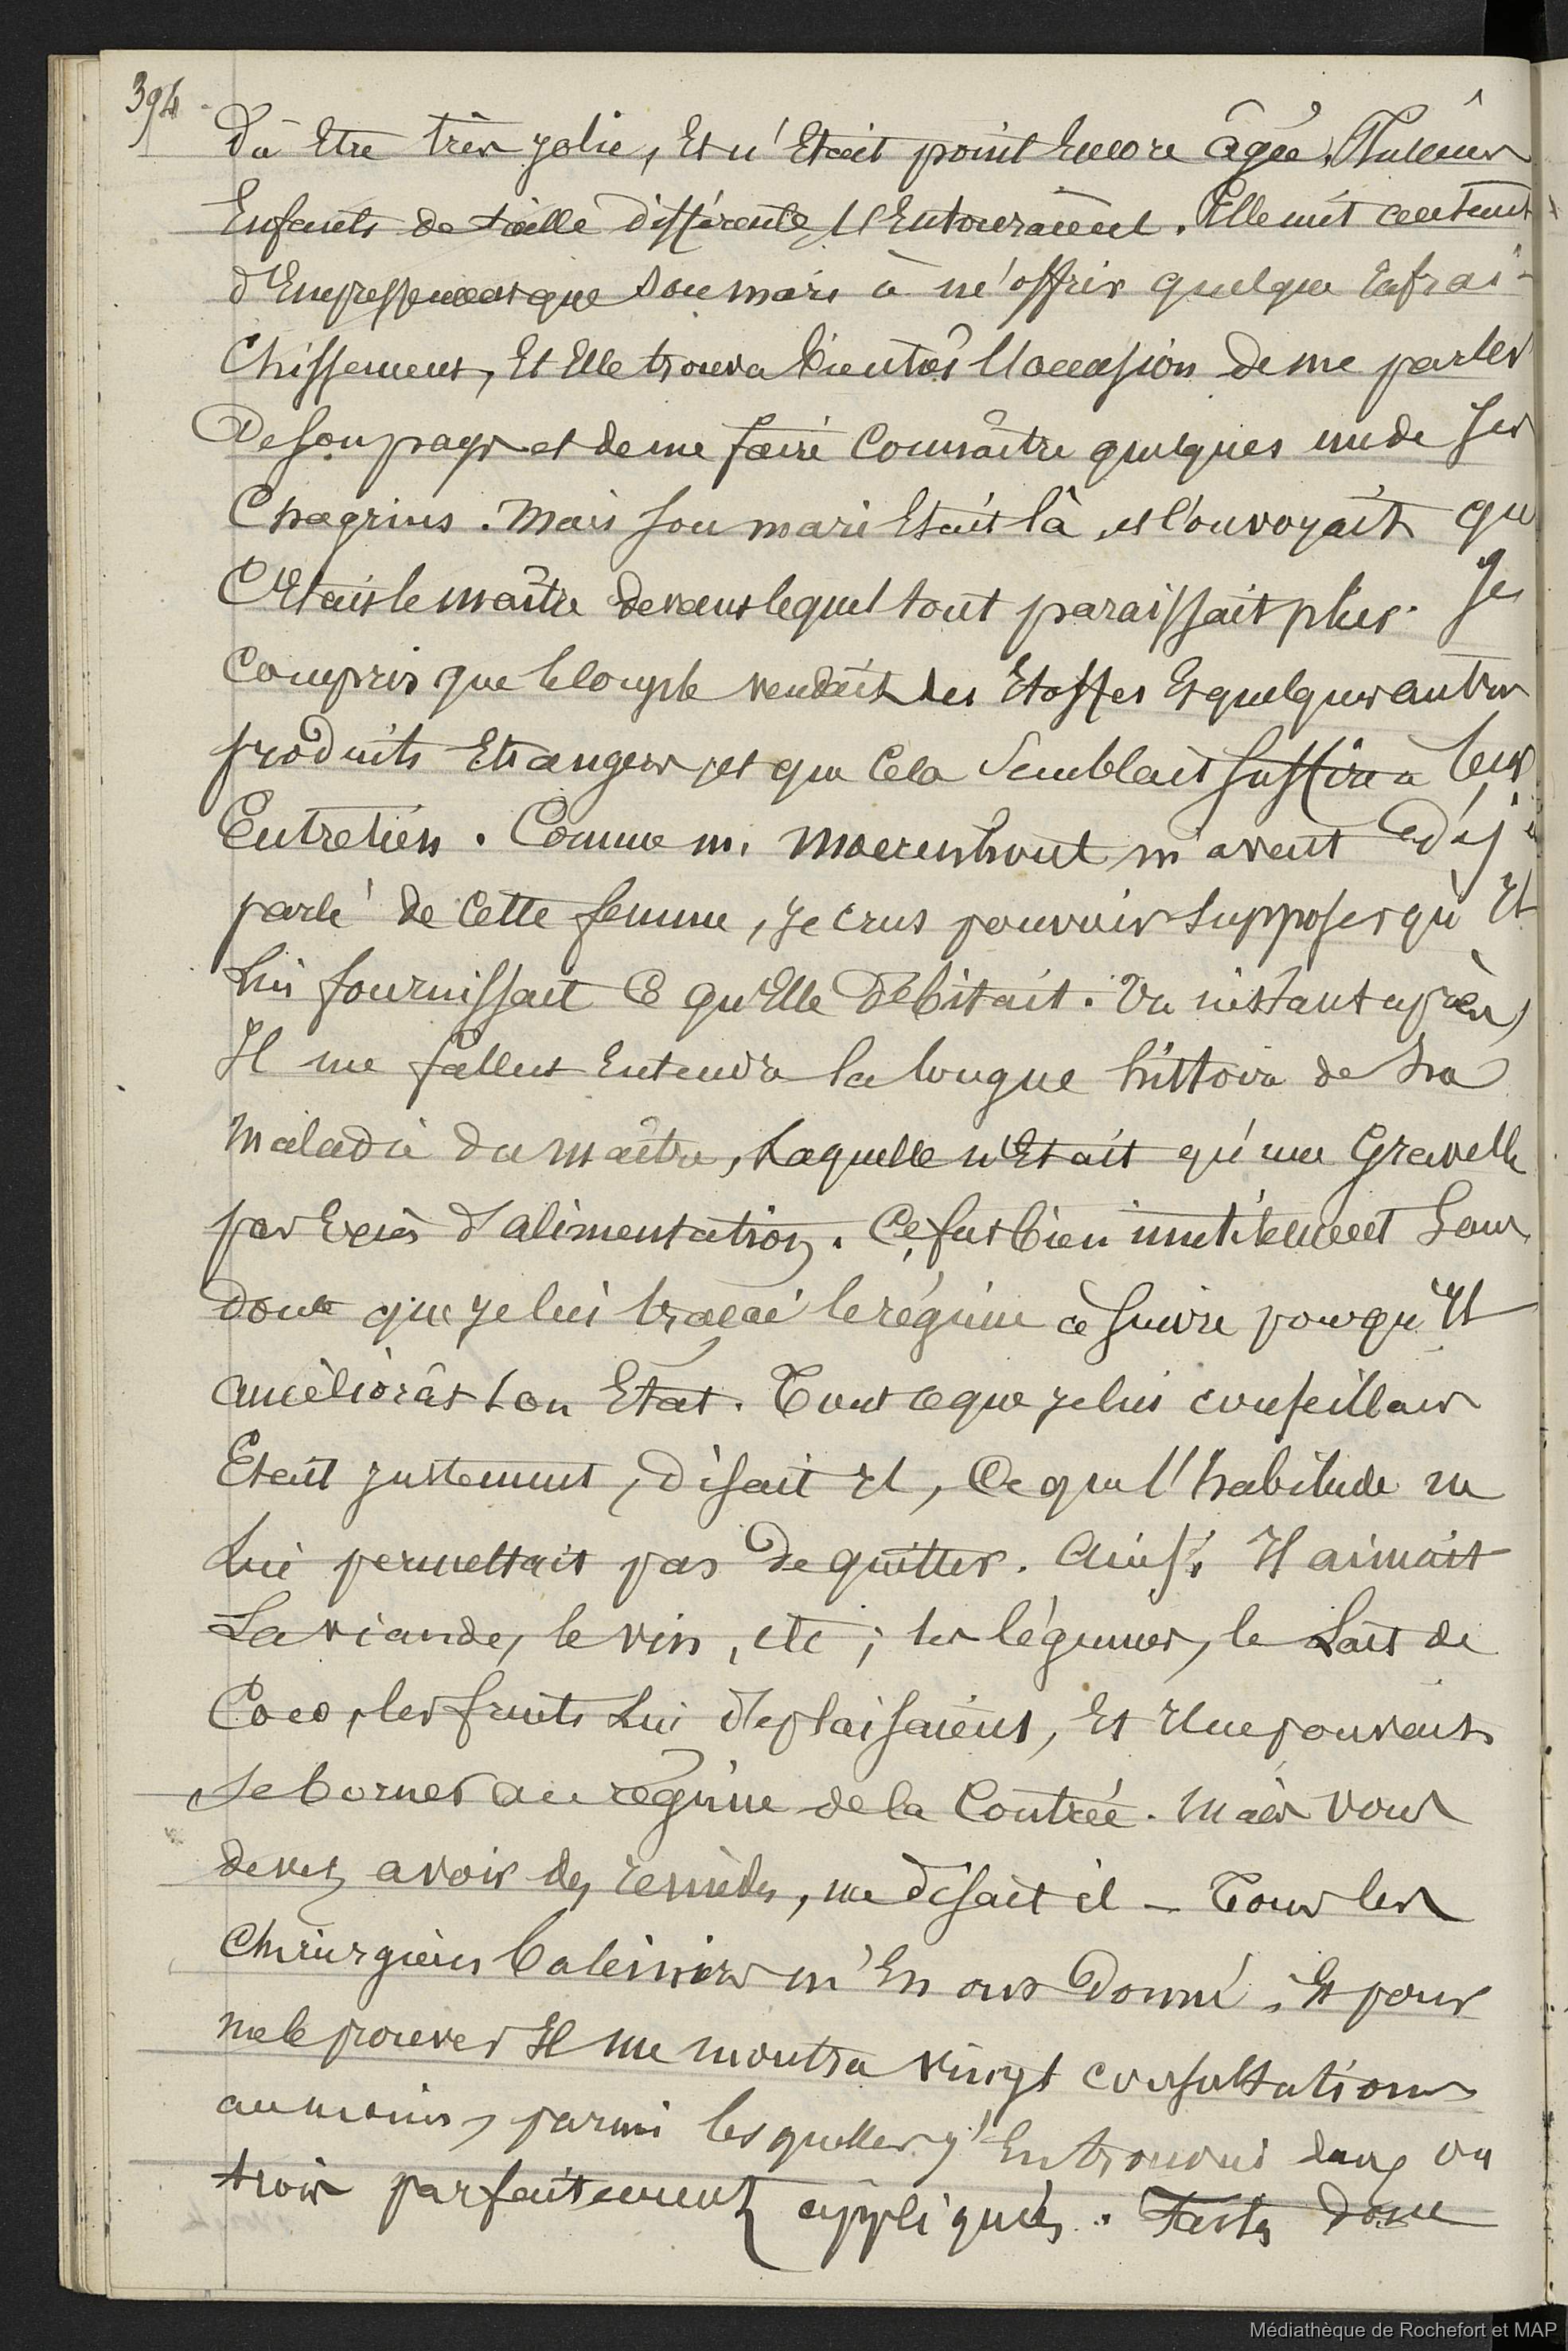 394
Dû Etre très jolie, Et n'Etait point Encore âgée. Plusieurs
Enfants de taille différente, l'Entouraient. Elle mit autant
d'Empressement que son mari à m'offrir quelque rafrai-
chissement, Et Elle trouva bientôt l'occasion de me parler
De son pays et de me faire Connaître quelques uns de ses
Chagrins. Mais son mari Etait là, et l'on voyait que
C'Etait le maître devant lequel tout paraissait plier. Je
Compris que le couple vendait des Etoffes Et quelques autres
produits Etrangers, et que Cela Semblait suffire à leur
Entretien. Comme m. Moerenhout m'avait déjà
parlé de Cette femme, je crus pouvoir supposer qu'Il
Lui fournissait Ce qu'Elle Débitait. Un instant après,
Il me fallut Entendre la longue histoire de la
maladie du maître, Laquelle n'Etait qu'une Gravelle
par Excès d'alimentation. Ce fut bien inutilement Sans
doute que je lui traçai le régime à suivre pour qu'Il
améliorât son Etat. Tout ce que je lui conseillais
Etait justement, disait Il, Ce que l'habitude ne
Lui permettait pas De quitter. Ainsi Il aimait
La viande, le vin, etc; les légumes, le Lait de
Coco, les fruits Lui déplaisaient, Et Il ne pouvait
Se borner au régime de la Contrée. Mais vous
devez avoir des remèdes, me disait il - Tous les
Chirurgiens baleiniers m'En ont Donné, Et pour
me le prouver Il me montra vingt consultations
au moins, parmi les quelles j'En trouvai deux ou
trois parfaitement appliquées. Faites donc
Médiathèque de Rochefort et MAP